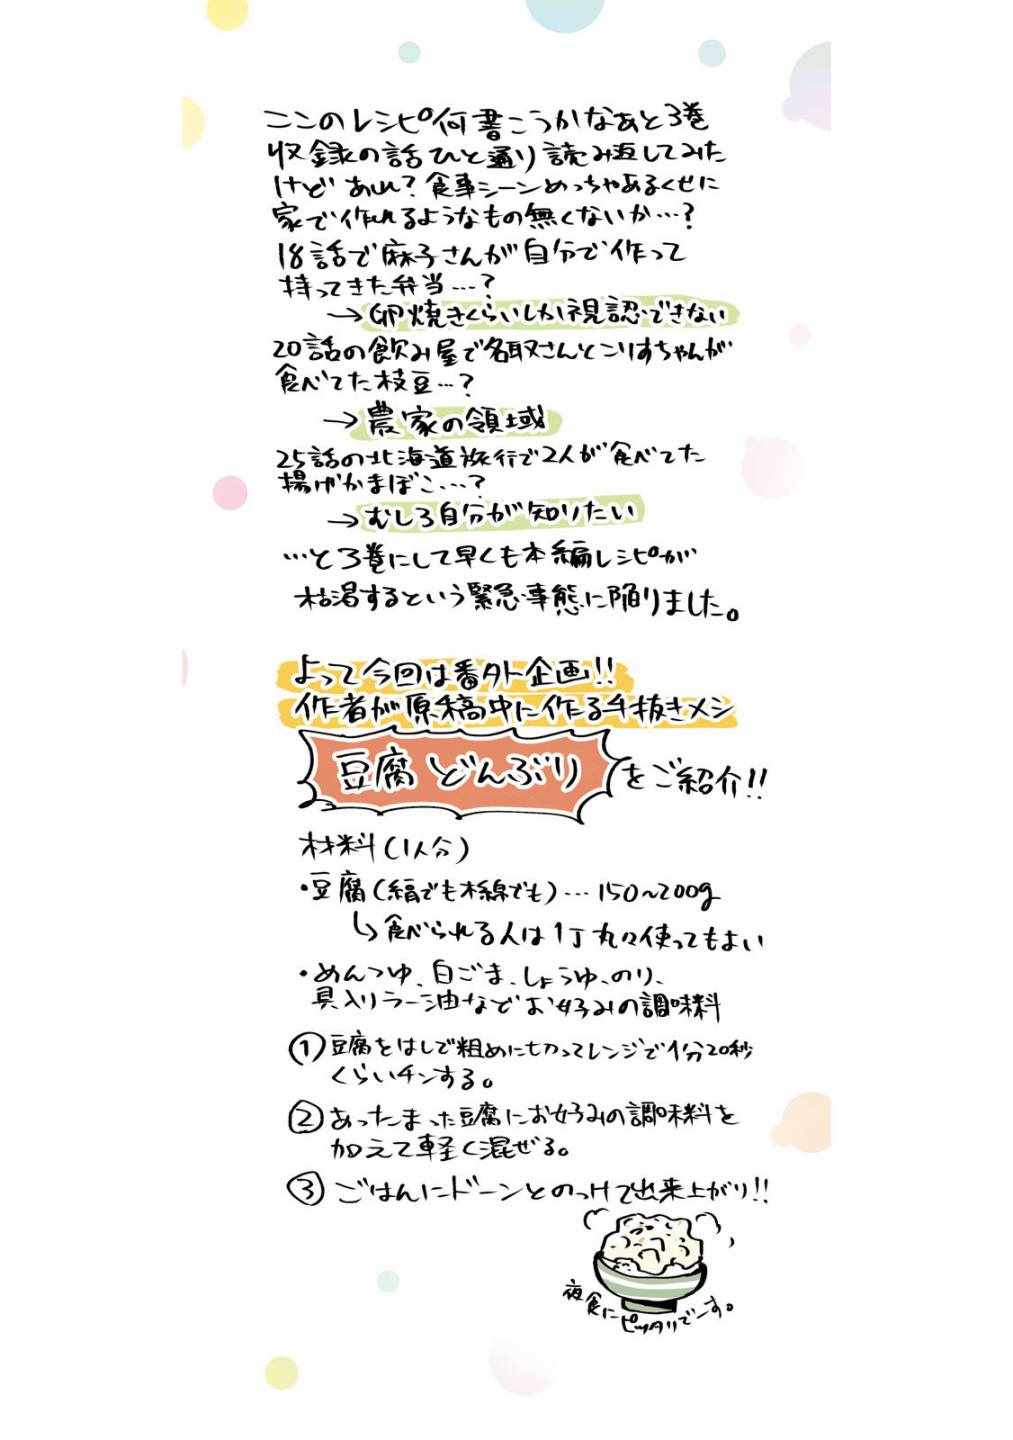 ここのレシピ何書こうかなあと3巻
収録の話ひと通り読み返してみた
けど あれ？食事シーンめっちゃあるくせに
家で作れるようなもの無くないか…？
18話で麻子さんが自分で作って
持ってきた弁当…？
→卵焼きくらいしか視認できない
20話の飲み屋で名取さんとこりすちゃんが
食べてた枝豆…？
→農家の領域
25話の北海道旅行で2人が食べてた
揚げかまぼこ…？
→むしろ自分が知りたい
…と3巻にして早くも本編レシピが
枯渇するという緊急事態に陥りました。
よって今回は番外企画!!
作者が原稿中に作る手抜きメシ
豆腐どんぶり をご紹介!!
材料(1人分)
・豆腐(絹でも木綿でも)…150〜200g
↳食べられる人は1丁丸々使ってもよい
・めんつゆ、白ごま、しょうゆ、のり、
具入りラー油などお好みの調味料
①豆腐をはしで粗めに切ってレンジで1分20秒
くらいチンする。
②あったまった豆腐にお好みの調味料を
加えて軽く混ぜる。
③ごはんにドーンとのっけて出来上がり!!
夜食に
ピッタリでーす。